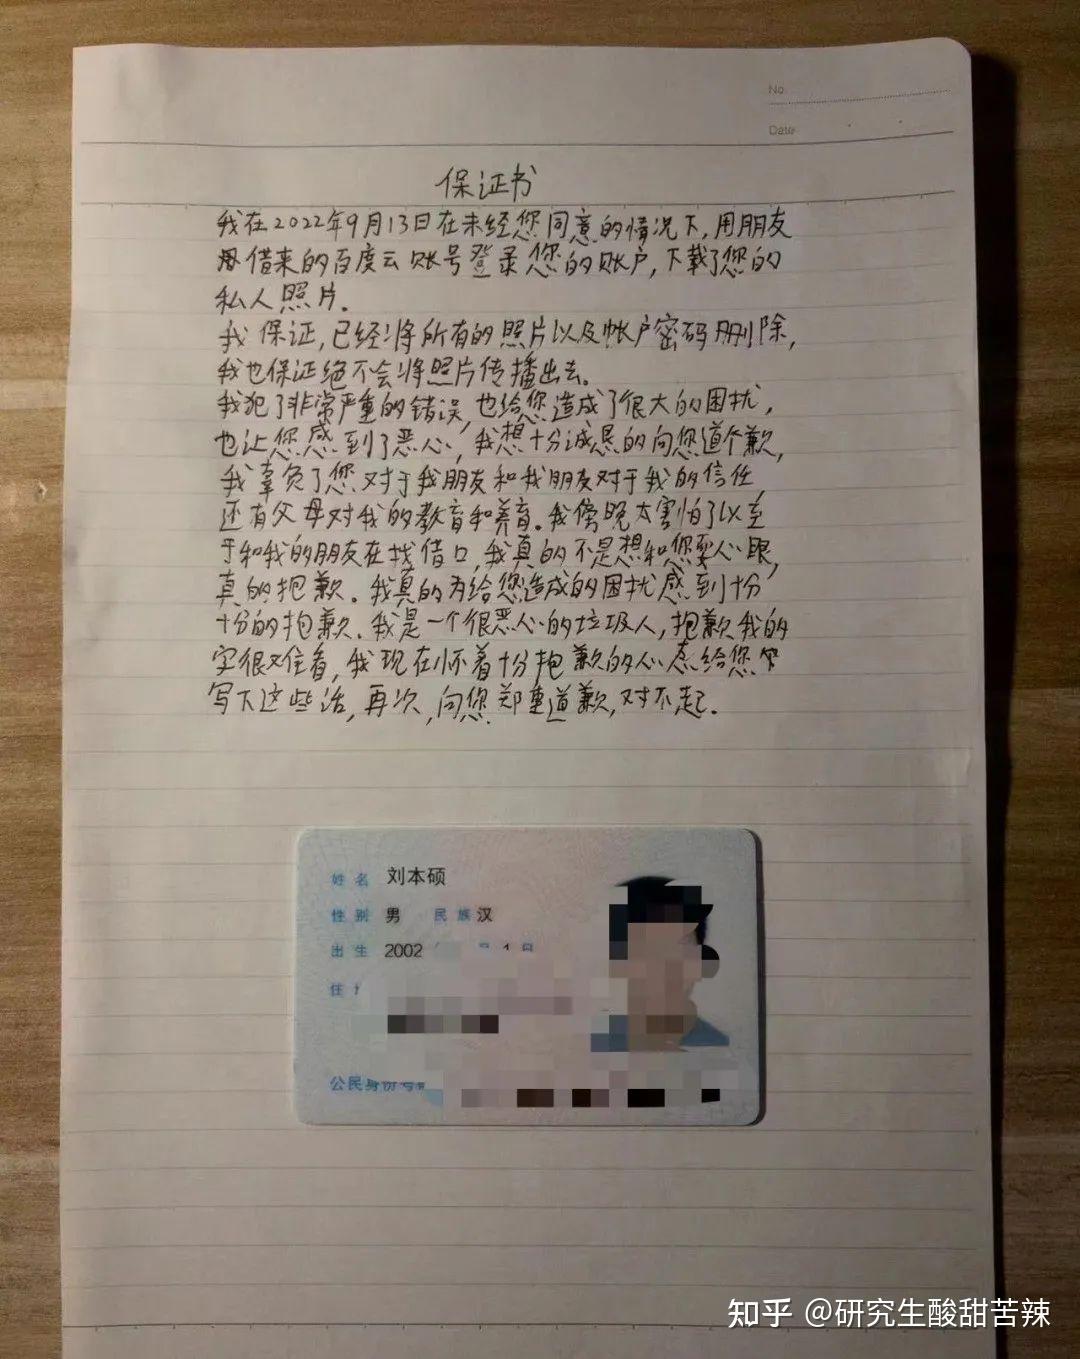 No.
Date
保证书
我在2022年9月13日在未经您同意的情况下,用朋友
借来的百度云账号登录您的账户,下载了您的
私人照片.
我保证,已经将所有的照片以及帐户密码删除,
我也保证绝不会将照片传播出去。
我犯了非常严重的错误,也给您造成了很大的困扰,
也让您感到了恶心,我想十分诚恳的向您道个歉,
我辜负了您对于我朋友和我朋友对于我的信任
还有父母对我的教育和养育。我傍晚太害怕了以至
于和我的朋友在找借口,我真的不是想和您耍心眼,
真的抱歉。我真的为给您造成的困扰感到十分
十分的抱歉.我是一个很恶心的垃圾人,抱歉我的
字很难看,我现在怀着十分抱歉的心态给您
写下这些话,再次,向您郑重道歉,对不起.
姓名 刘本硕
性别 男 民族 汉
出生 2002 1日
住
公民身份号
知乎 @研究生酸甜苦辣